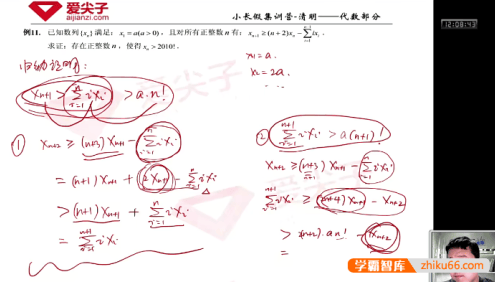 爱尖子
aijianzi.com
小长假集训营-清明——代数部分
12:08:43
例11. 已知数列{xₙ}满足：x₁=a(a>0)，且对所有正整数n有：xₙ₊₁≥(n+2)xₙ-∑ixᵢ.
求证：存在正整数n，使得xₙ>2010!.
归纳证明：
x₁=a.
x₂=2a.
xₙ₊₁ > ∑ixᵢ > a·n!
① xₙ₊₂ ≥ (n+3)xₙ₊₁ - ∑ixᵢ
= (n+1)xₙ₊₁ + 2xₙ₊₁ - ∑ixᵢ
> (n+1)xₙ₊₁ + ∑ixᵢ
= ∑ixᵢ
② ∑ixᵢ > a(n+1)!
xₙ₊₂ ≥ (n+3)xₙ₊₁ - ∑ixᵢ
∑ixᵢ ≥ (n+4)xₙ₊₁ - xₙ₊₂
学霸智库
zhiku66.com